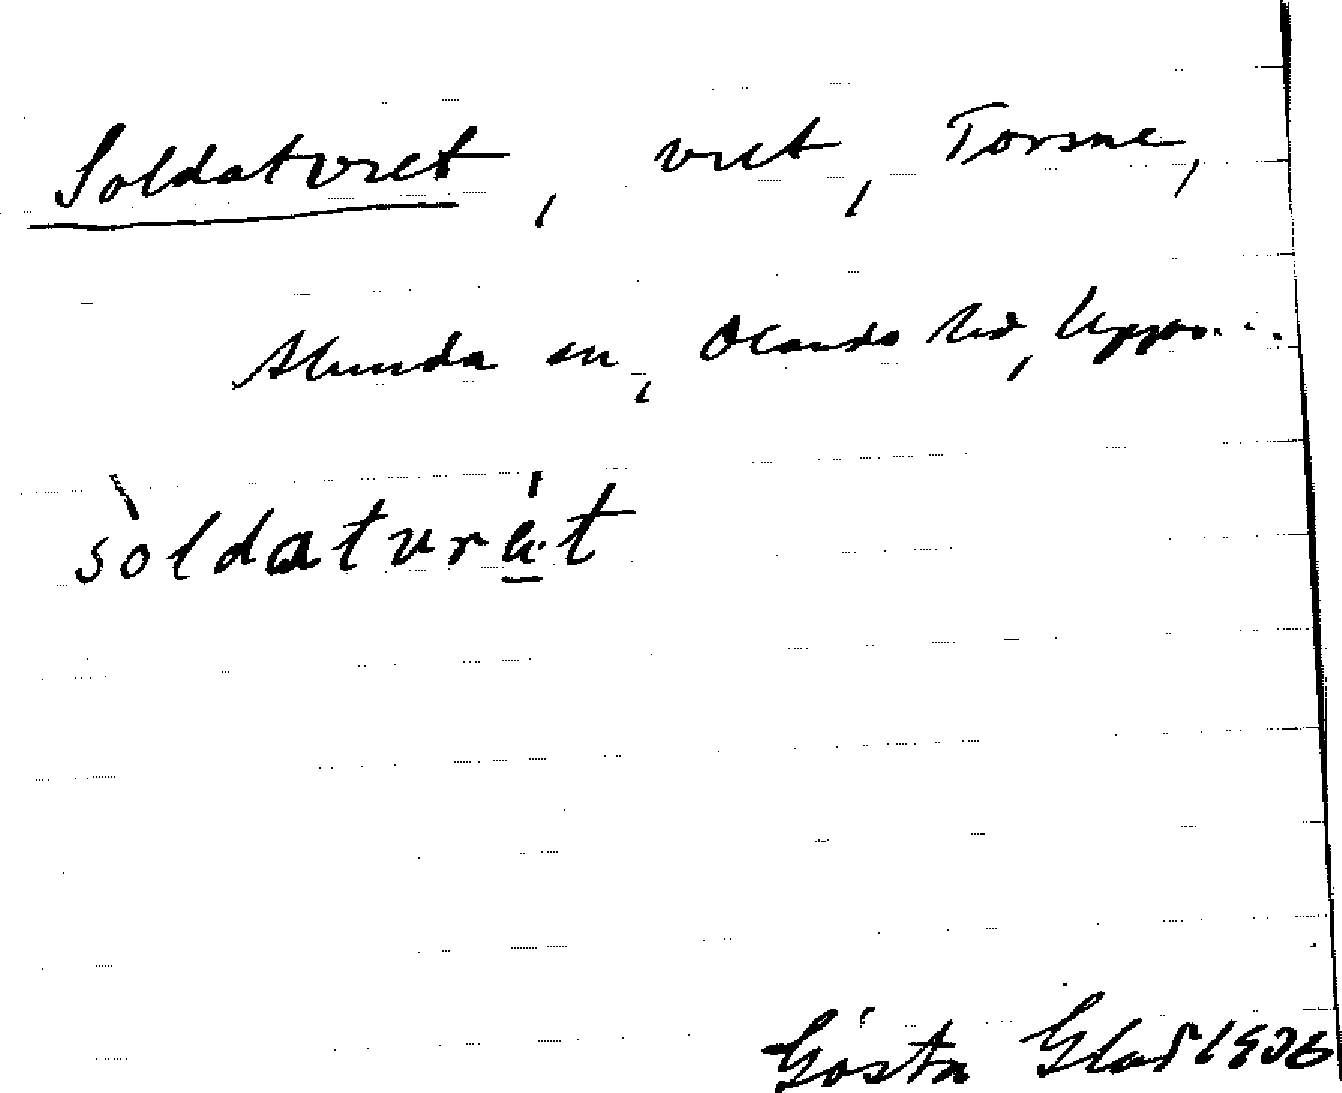 Soldatvret, vret, Torsne,
Alunda sn, Olands hd, Upps...
sòldatvrét
Gösta Glad 1936